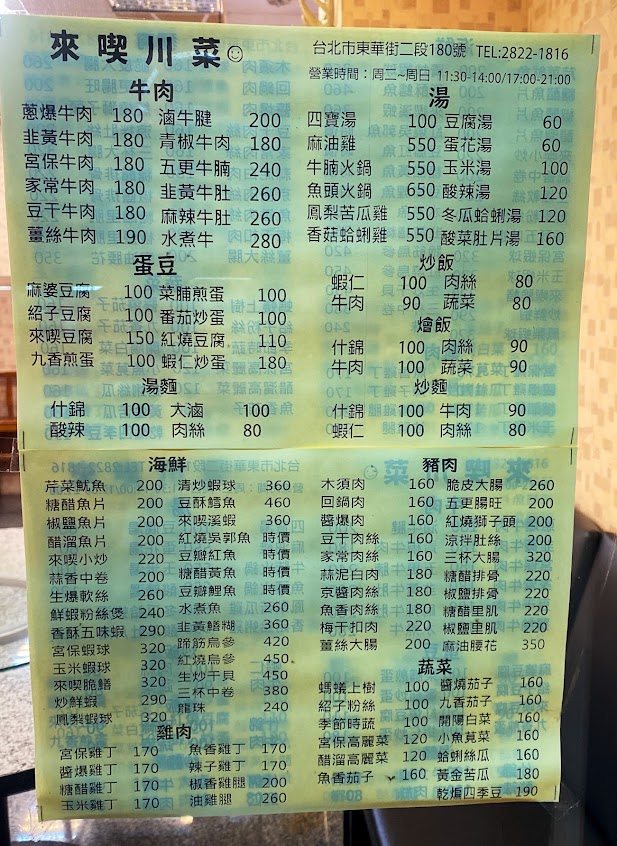 來喫川菜☺
台北市東華街二段180號 TEL:2822-1816
營業時間：周二~周日 11:30-14:00/17:00-21:00
牛肉
蔥爆牛肉 180 滷牛腱 200
韭黃牛肉 180 青椒牛肉 180
宮保牛肉 180 五更牛腩 240
家常牛肉 180 韭黃牛肚 260
豆干牛肉 180 麻辣牛肚 260
薑絲牛肉 190 水煮牛 280
蛋豆
麻婆豆腐 100 菜脯煎蛋 100
紹子豆腐 100 番茄炒蛋 100
來喫豆腐 150 紅燒豆腐 110
九香煎蛋 100 蝦仁炒蛋 180
湯麵
什錦 100 大滷 100
酸辣 100 肉絲 80
湯
四寶湯 100 豆腐湯 60
麻油雞 550 蛋花湯 60
牛腩火鍋 550 玉米湯 100
魚頭火鍋 650 酸辣湯 120
鳳梨苦瓜雞 550 冬瓜蛤蜊湯 120
香菇蛤蜊雞 550 酸菜肚片湯 160
炒飯
蝦仁 100 肉絲 80
牛肉 90 蔬菜 80
燴飯
什錦 100 肉絲 90
牛肉 100 蔬菜 90
炒麵
什錦 100 牛肉 90
蝦仁 100 肉絲 80
海鮮
芹菜魷魚 200 清炒蝦球 360
糖醋魚片 200 豆酥鱈魚 460
椒鹽魚片 200 來喫溪蝦 360
醋溜魚片 200 紅燒吳郭魚 時價
來喫小炒 220 豆瓣紅魚 時價
蒜香中卷 200 糖醋黃魚 時價
生爆軟絲 260 豆瓣鯉魚 時價
鮮蝦粉絲煲 240 水煮魚 260
香酥五味蝦 290 韭黃鱔糊 360
宮保蝦球 320 蹄筋烏參 420
玉米蝦球 320 紅燒烏參 450
來喫脆鱔 320 生炒干貝 450
炒鮮蝦 290 三杯中卷 380
鳳梨蝦球 320 龍珠 240
雞肉
宮保雞丁 170 魚香雞丁 170
醬爆雞丁 170 辣子雞丁 170
糖醋雞丁 170 椒香雞腿 200
玉米雞丁 170 油雞腿 260
豬肉
木須肉 160 脆皮大腸 260
回鍋肉 160 五更腸旺 200
醬爆肉 160 紅燒獅子頭 200
豆干肉絲 160 涼拌肚絲 200
家常肉絲 160 三杯大腸 320
蒜泥白肉 180 糖醋排骨 220
京醬肉絲 180 椒鹽排骨 220
魚香肉絲 180 糖醋里肌 220
梅干扣肉 220 椒鹽里肌 220
薑絲大腸 200 麻油腰花 350
蔬菜
螞蟻上樹 100 醬燒茄子 160
紹子粉絲 100 九香茄子 160
季節時蔬 100 開陽白菜 160
宮保高麗菜 120 小魚莧菜 160
醋溜高麗菜 120 蛤蜊絲瓜 160
魚香茄子 160 黃金苦瓜 180
乾煸四季豆 190